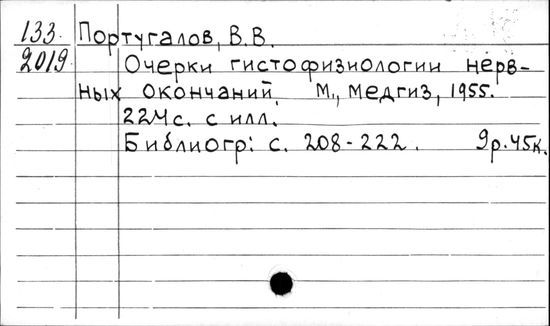 133. Португалов, В.В.
2019 Очерки гистофизиологии нерв-
ных окончаний. М., Медгиз, 1955.
224 с. с илл.
Библиогр: с. 208-222. 9р.45к.